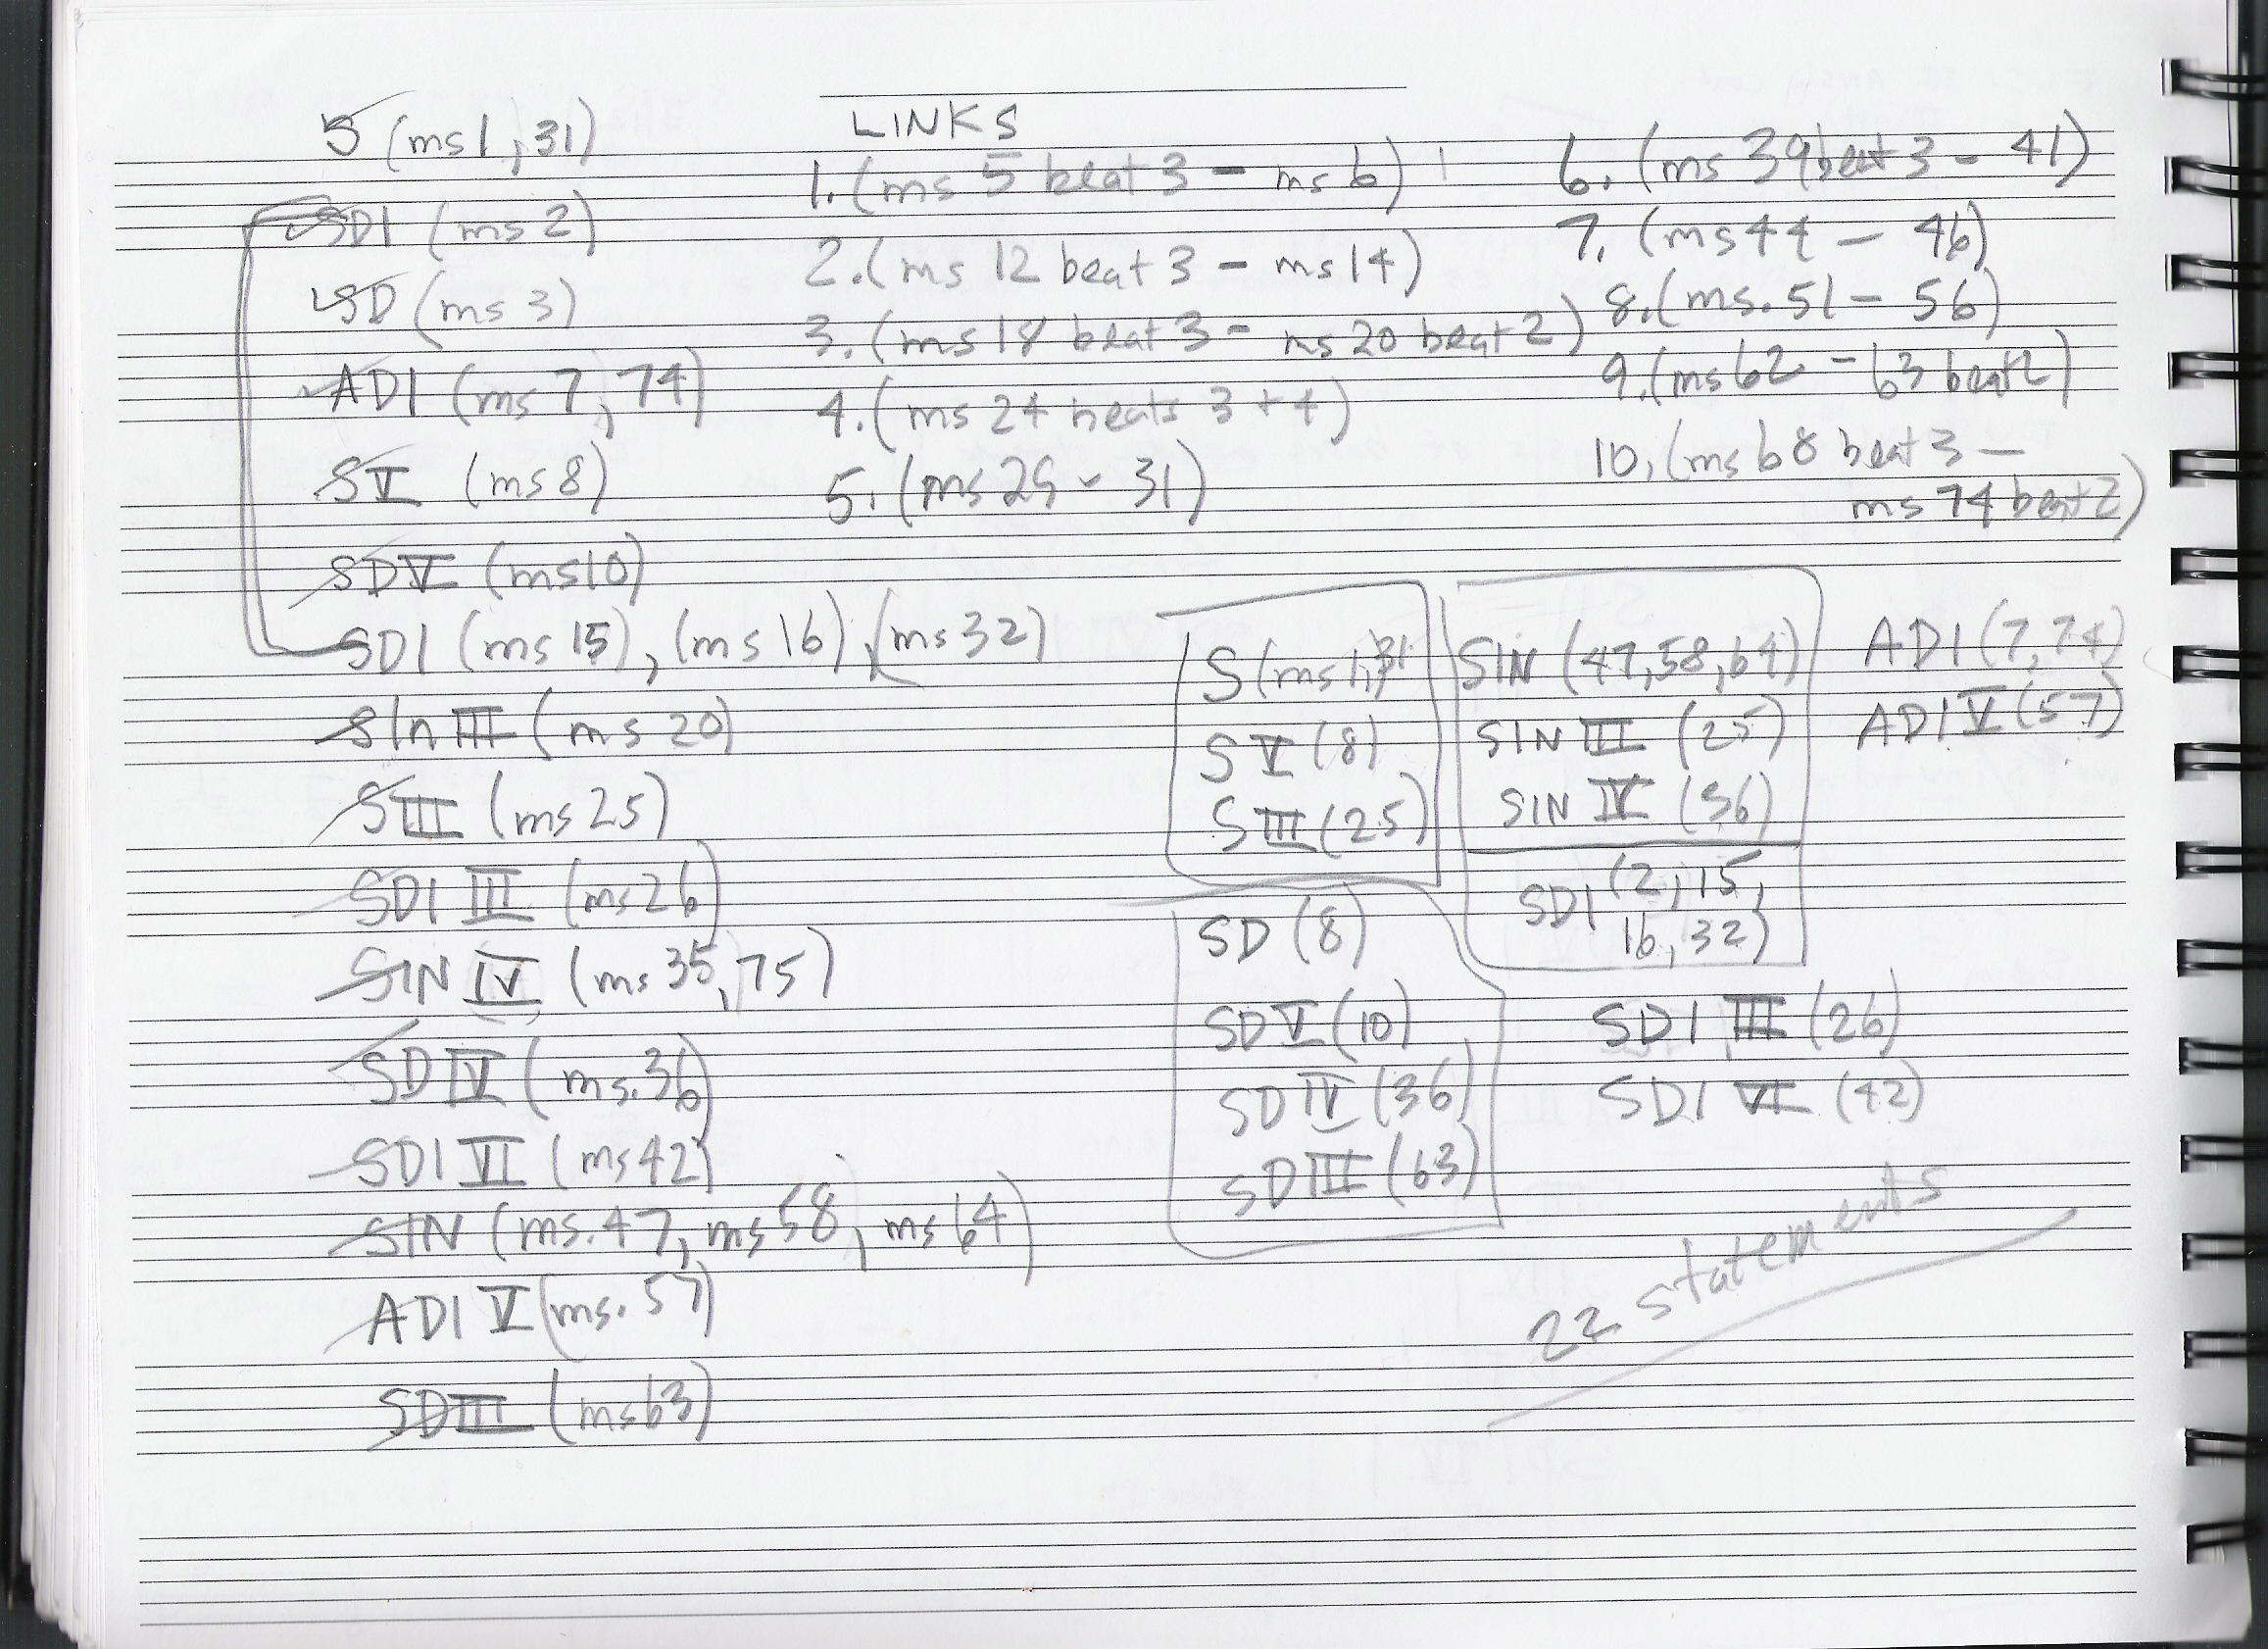 S (ms1, 31)
SDI (ms 2)
SD (ms 3)
ADI (ms 7, 74)
S V (ms 8)
SD V (ms10)
SDI (ms 15), (ms 16), (ms 32)
SIn III (ms 20)
S III (ms 25)
SDI III (ms 26)
SIN IV (ms 35, 75)
SD IV (ms. 36)
SDI VI (ms 42)
SIN (ms. 47, ms 58, ms 64)
ADI V (ms. 57)
SD III (ms 63)
LINKS
1. (ms 5 beat 3 - ms 6)
2. (ms 12 beat 3 - ms 14)
3. (ms 18 beat 3 - ms 20 beat 2)
4. (ms 24 beats 3 + 4)
5. (ms 29 - 31)
6. (ms 39 beat 3 - 41)
7. (ms 44 - 46)
8. (ms. 51 - 56)
9. (ms 62 - 63 beat 2)
10. (ms 68 beat 3 -
ms 74 beat 2)
S (ms 1, 31
S V (8)
S III (25)
SIN (47, 58, 64)
SIN III (25)
SIN IV (36)
SDI (2, 15,
16, 32)
ADI (7, 74)
ADI V (57)
SD (8)
SD V (10)
SD IV (36)
SD III (63)
SDI III (26)
SDI VI (42)
22 statements